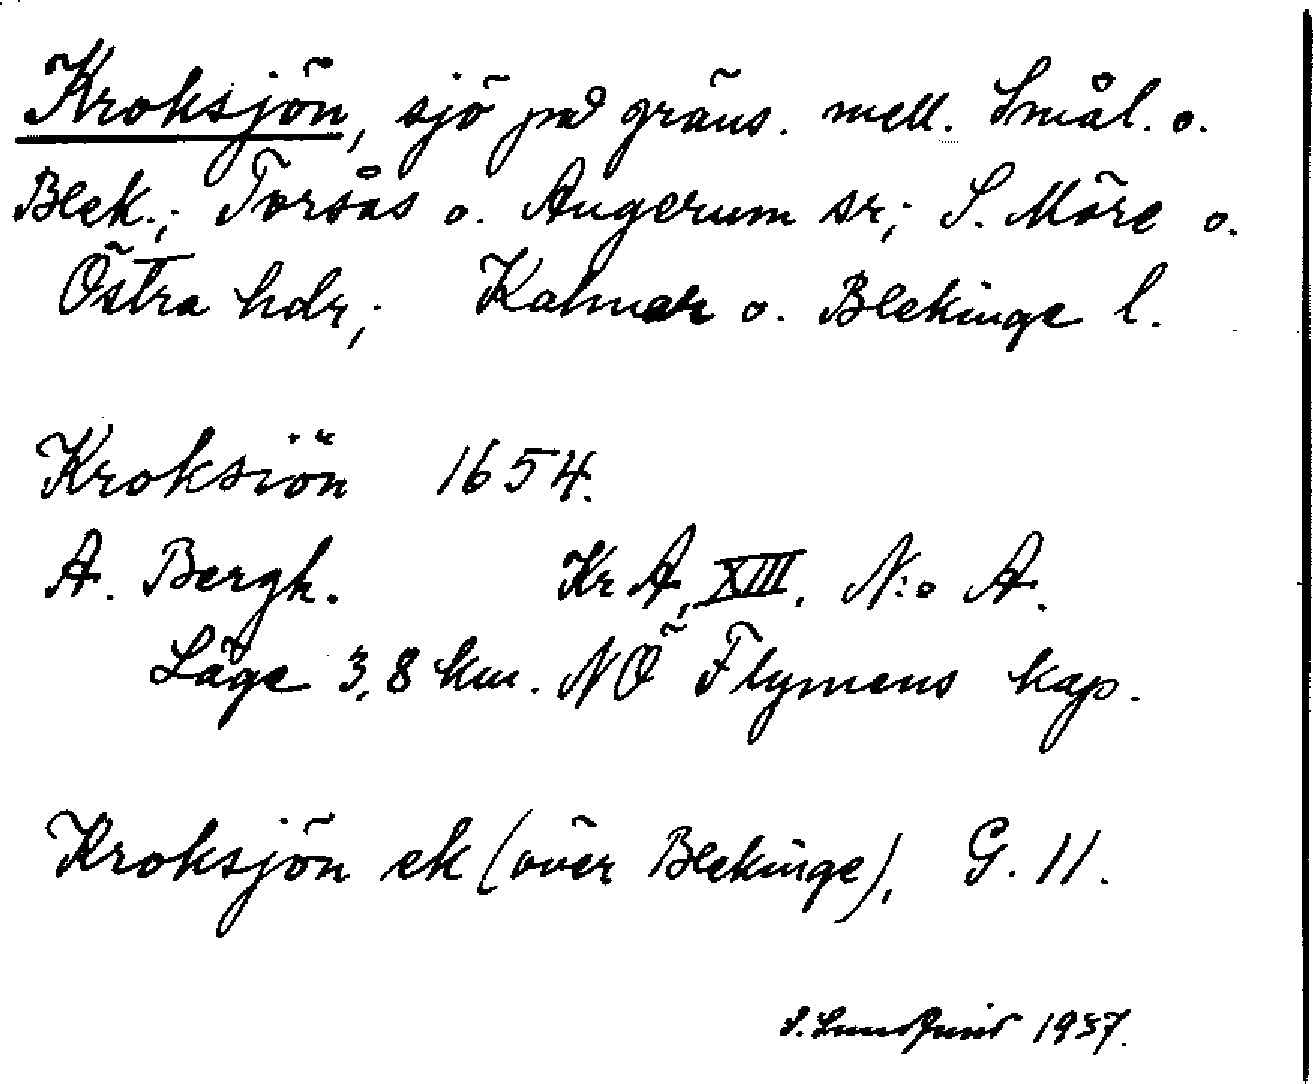 Kroksjön, sjö på gräns. mell. Smål. o.
Blek.; Torsås o. Augerum sr; S. Möre o.
Östra hdr; Kalmar o. Blekinge l.
Kroksiön 1654.
A. Bergh. Kr A, XIII. N:o A.
Läge 3,8 km. NÖ Flymens kap.
Kroksjön ek (över Blekinge), G. 11.
S. Lundquist 1937.